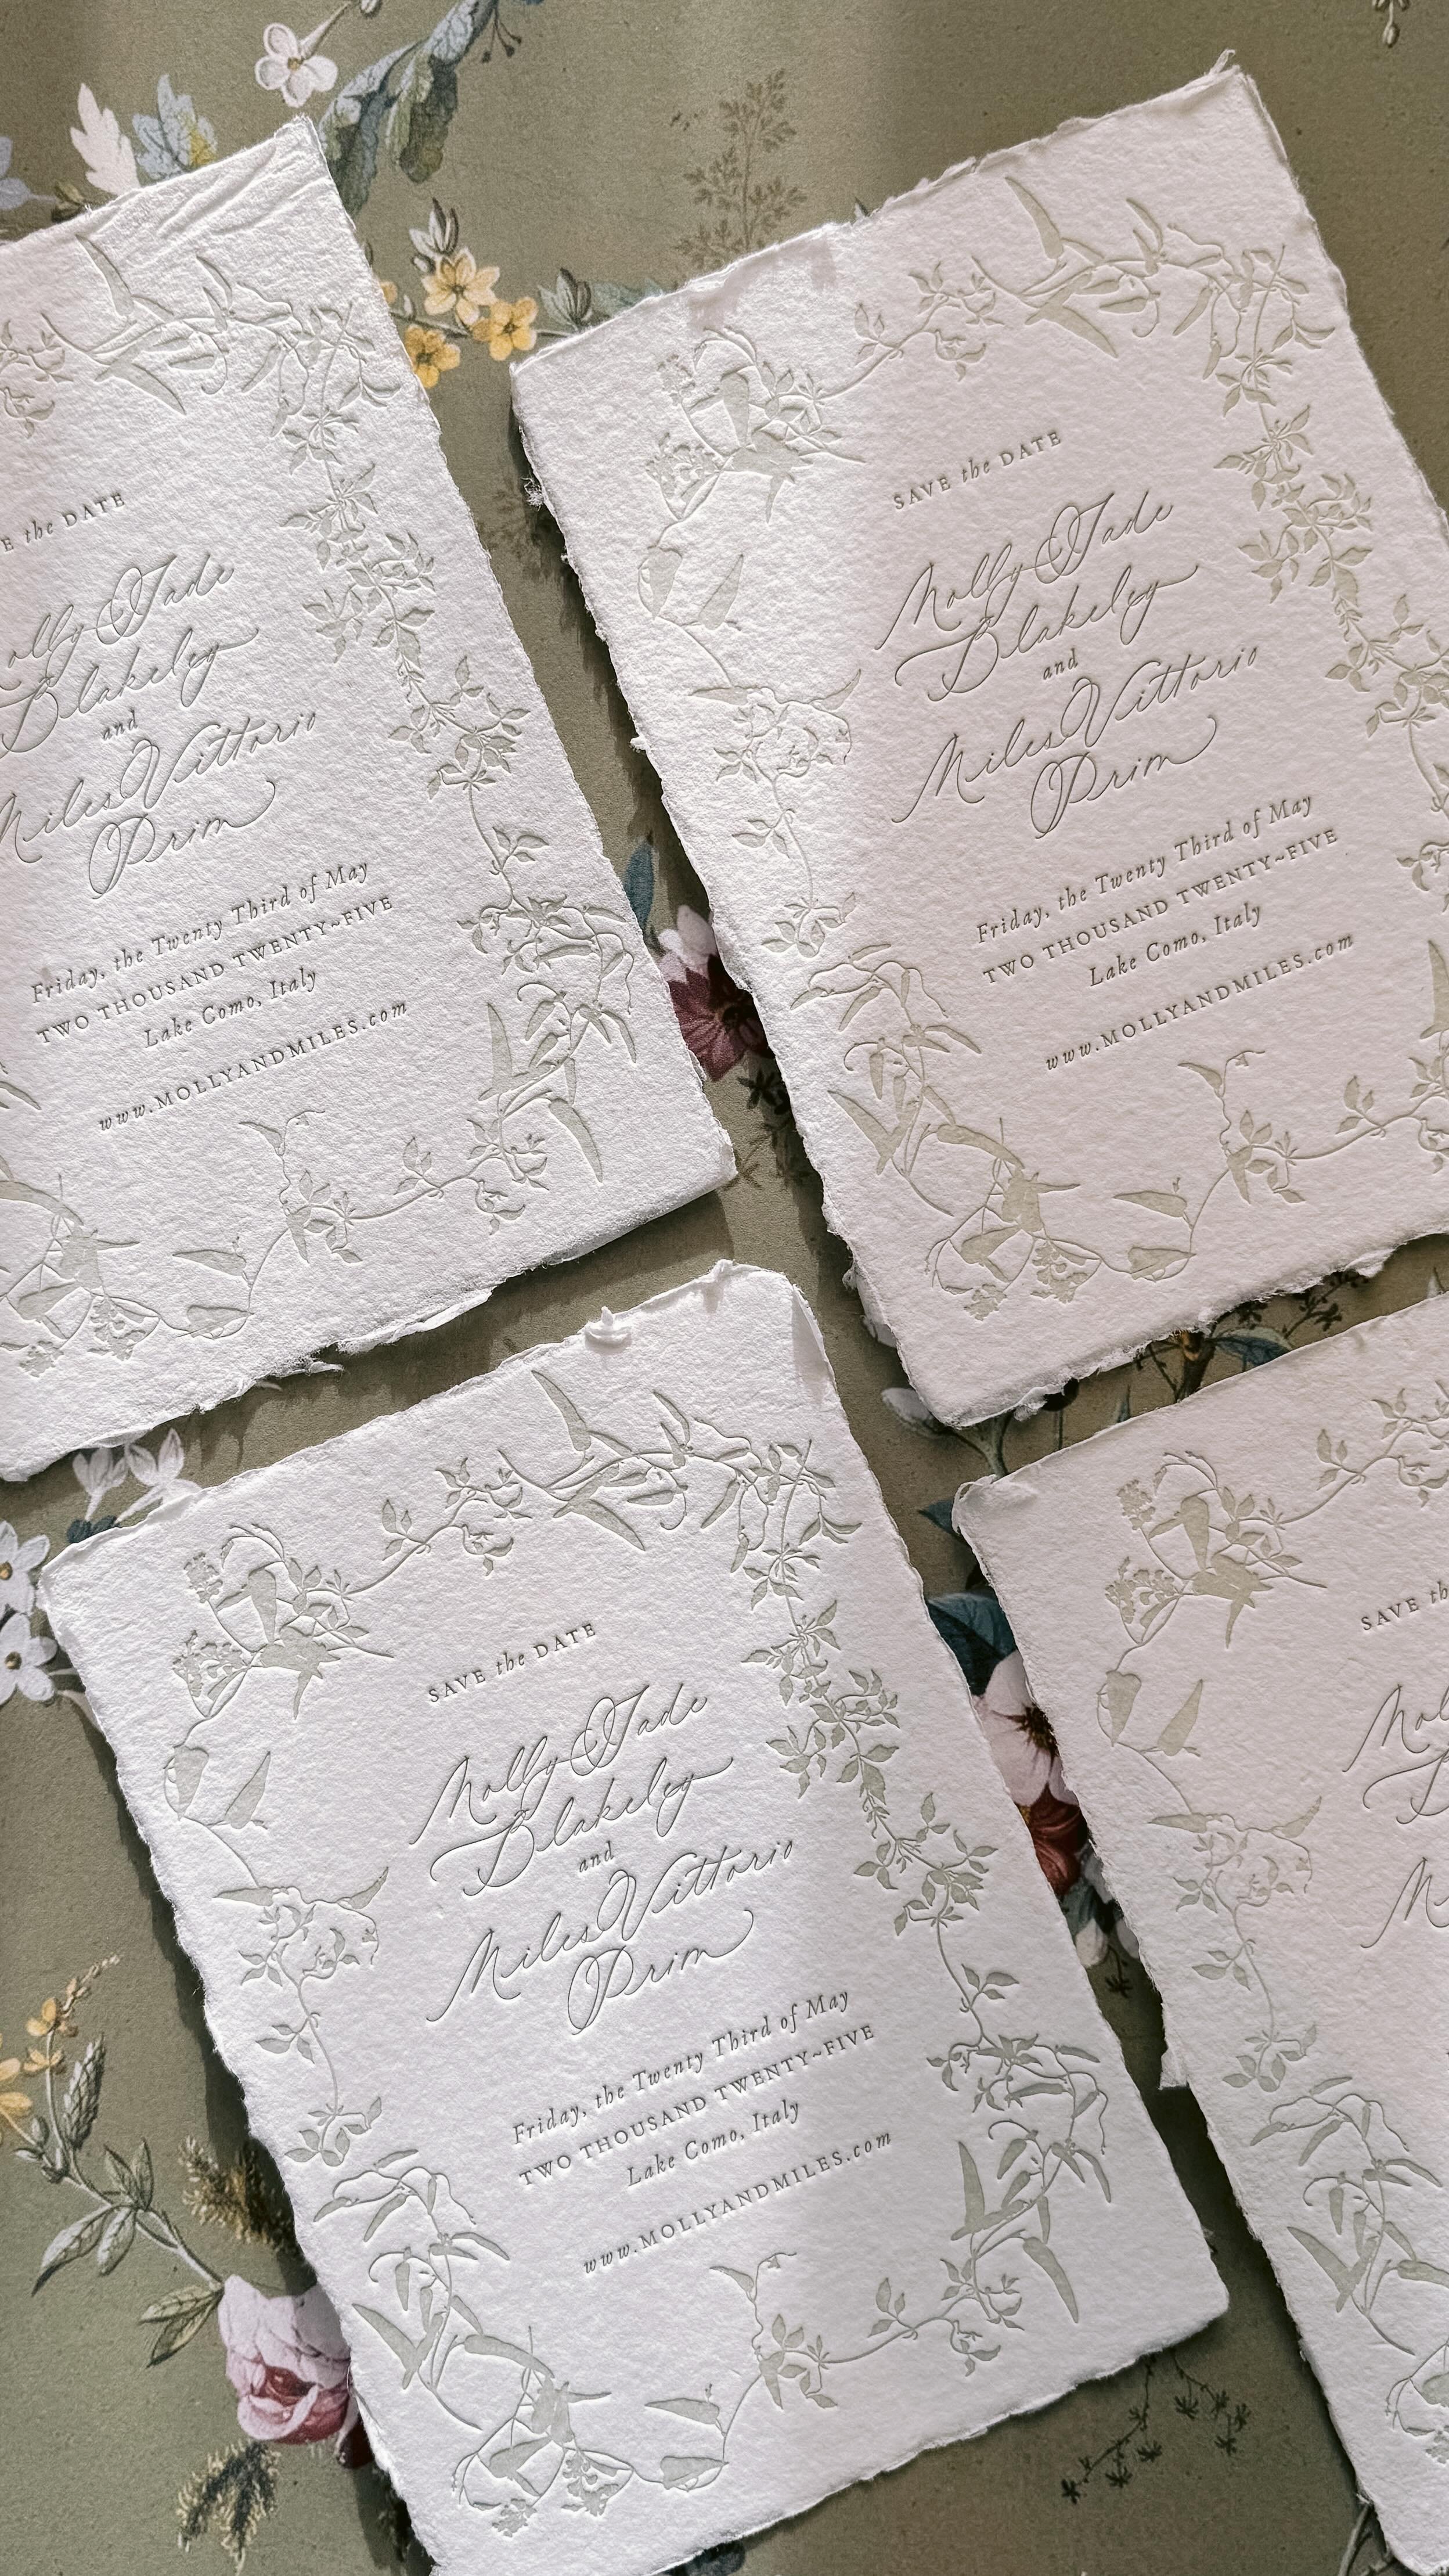 E the DATE
olly Jade
Blakeley
and
Miles Vittorio
Prim
Friday, the Twenty Third of May
TWO THOUSAND TWENTY~FIVE
Lake Como, Italy
www.MOLLYANDMILES.com
SAVE the DATE
Molly Jade
Blakeley
and
Miles Vittorio
Prim
Friday, the Twenty Third of May
TWO THOUSAND TWENTY~FIVE
Lake Como, Italy
www.MOLLYANDMILES.com
SAVE the DATE
Molly Jade
Blakeley
and
Miles Vittorio
Prim
Friday, the Twenty Third of May
TWO THOUSAND TWENTY~FIVE
Lake Como, Italy
www.MOLLYANDMILES.com
SAVE th
Mol